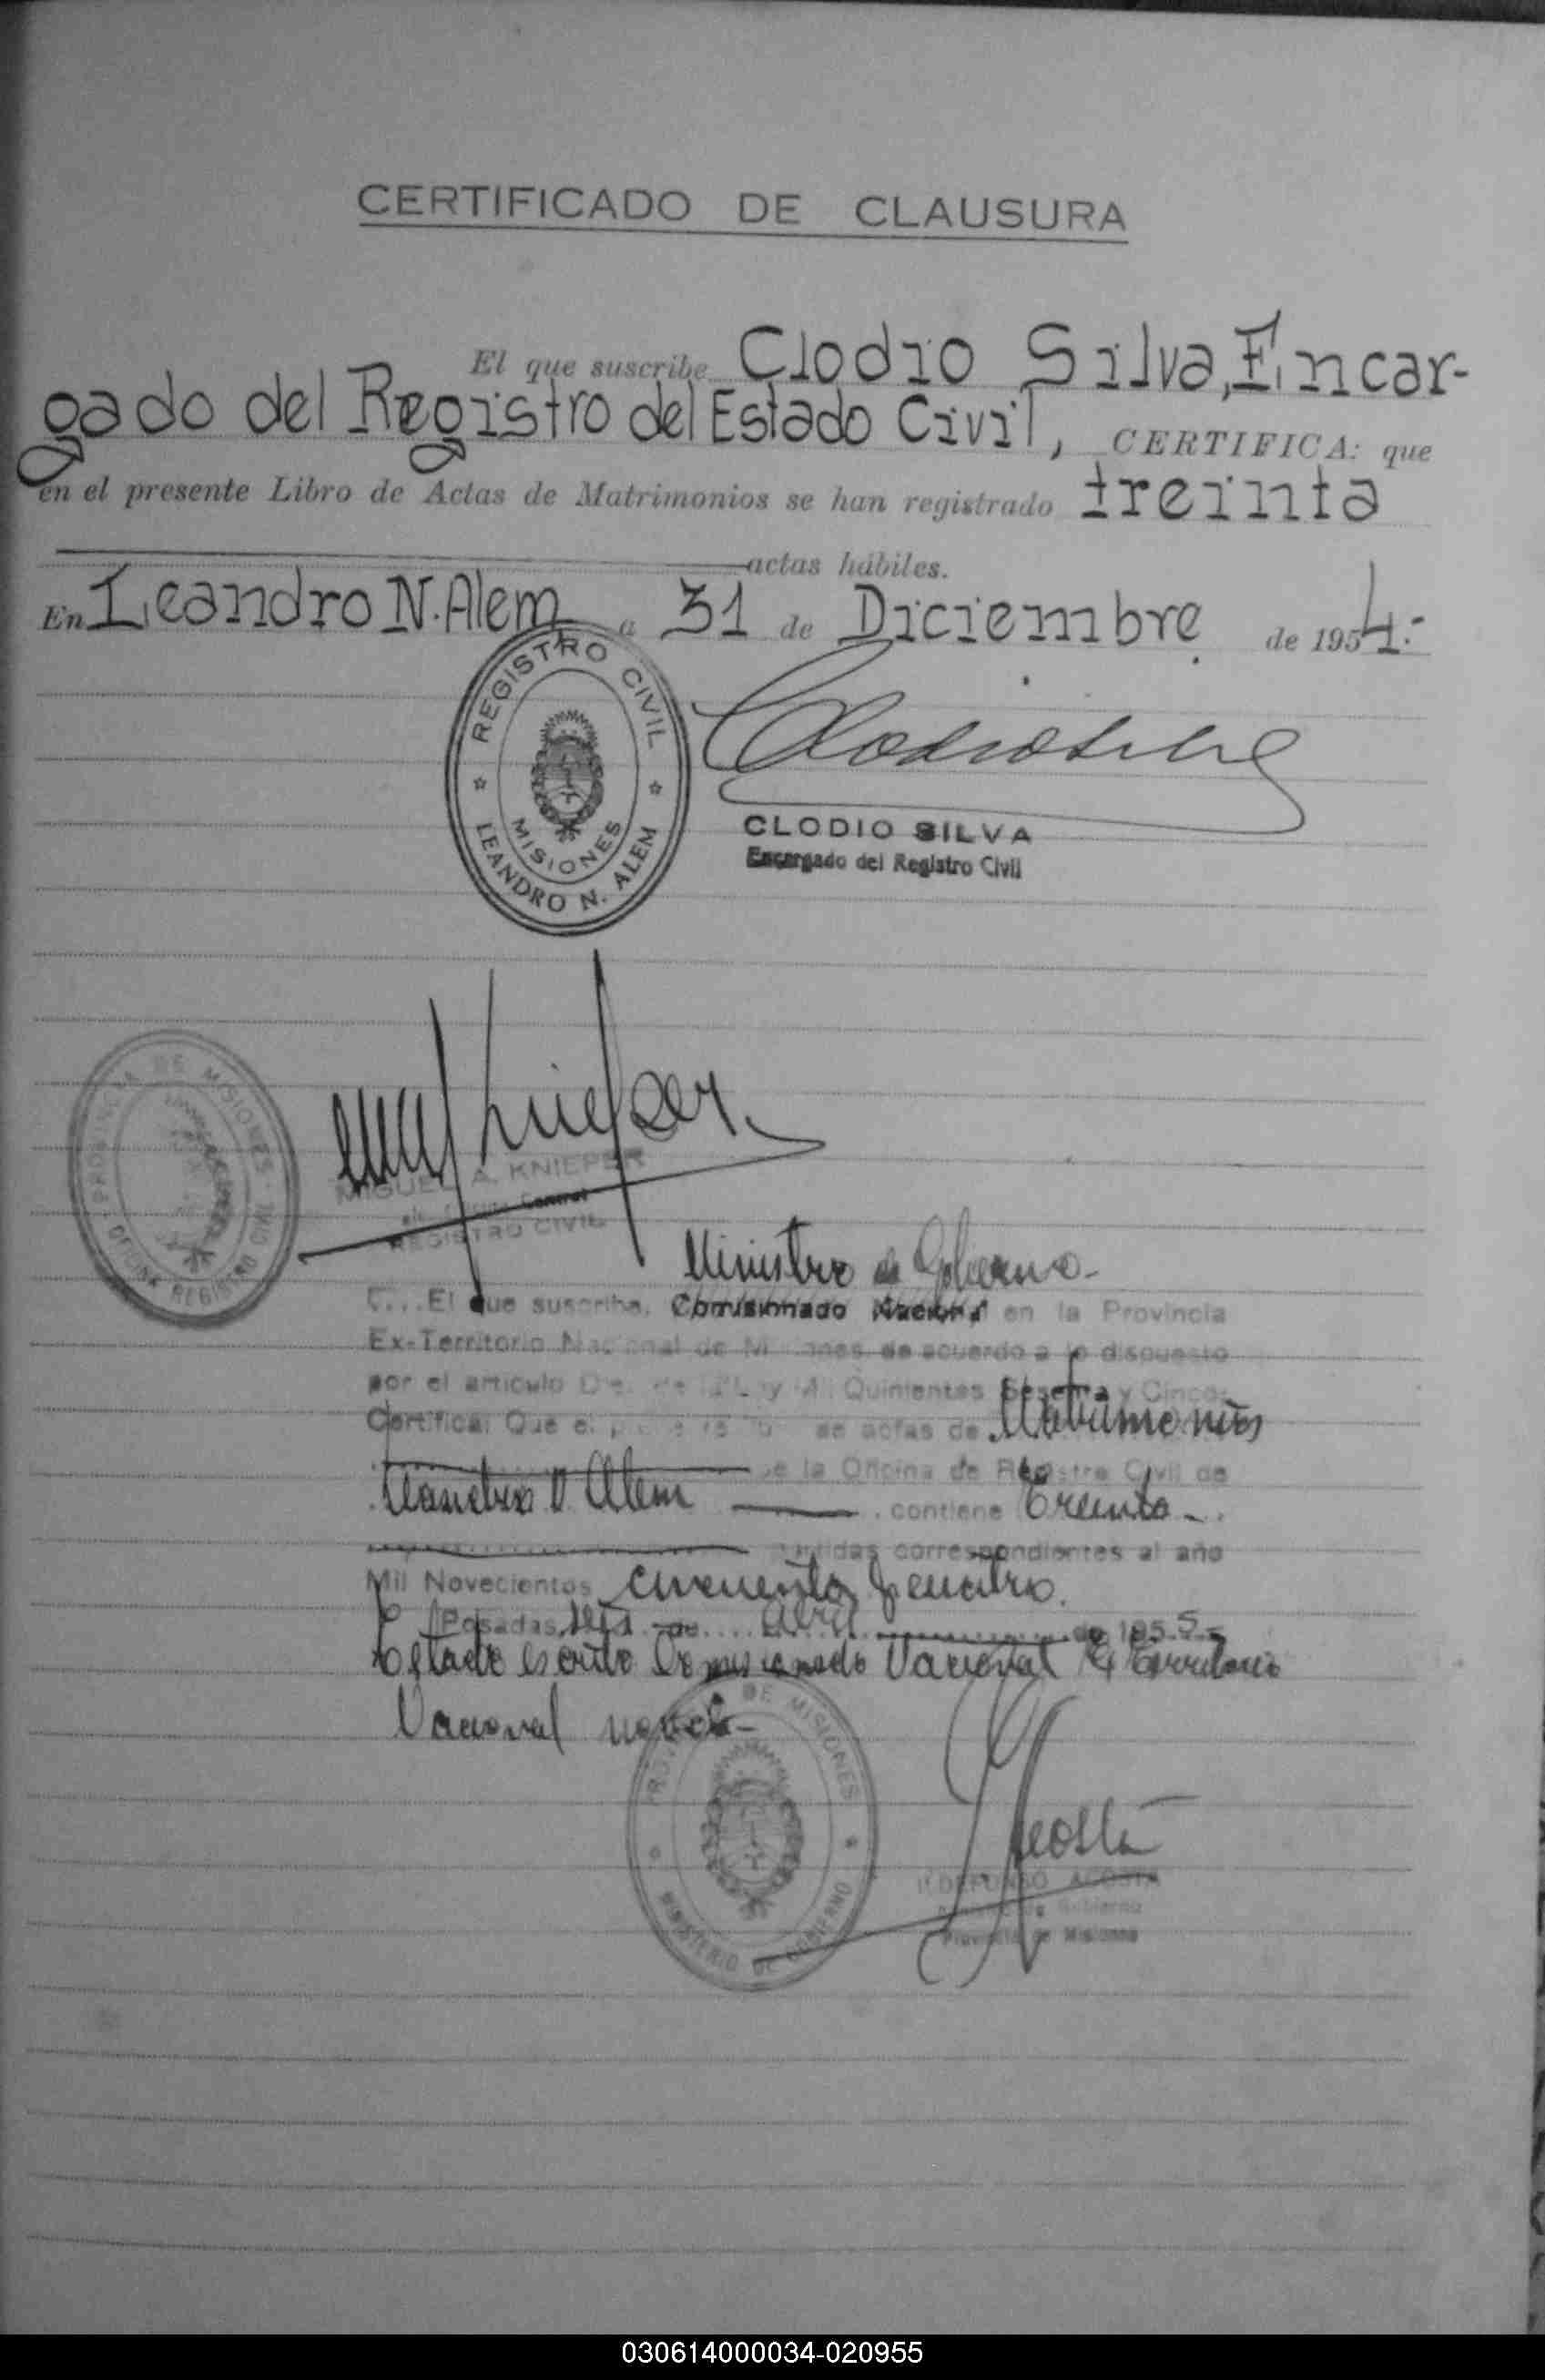 CERTIFICADO DE CLAUSURA
El que suscribe Clodio Silva, Encar-
gado del Registro del Estado Civil, CERTIFICA: que
en el presente Libro de Actas de Matrimonios se han registrado treinta
actas hábiles.
En Leandro N. Alem a 31 de Diciembre de 1954.-
REGISTRO CIVIL
MISIONES
LEANDRO N. ALEM
Clodio Silva
CLODIO SILVA
Encargado del Registro Civil
PROVINCIA DE MISIONES
OFICINA REGISTRO CIVIL
Knieper
MIGUEL A. KNIEPER
Central
REGISTRO CIVIL
Ministro de Gobierno.-
El que suscribe, Comisionado Nacional en la Provincia
Ex-Territorio Nacional de Misiones de acuerdo a lo dispuesto
por el artículo de la Ley Mil Quinientos Sesenta y Cinco:
Certifica: Que el de actas de Matrimonios
de la Oficina de Registro Civil de
Leandro N Alem contiene treinta
partidas correspondientes al año
Mil Novecientos cincuenta y cuatro.
Posadas, de Abril de 1955.-
Testado escrito Comisionado Nacional Territorio
Nacional no vale-
PROVINCIA DE MISIONES
MINISTERIO DE GOBIERNO
Acosta
ILDEFONSO ACOSTA
Ministro de Gobierno
Provincia de Misiones
030614000034-020955